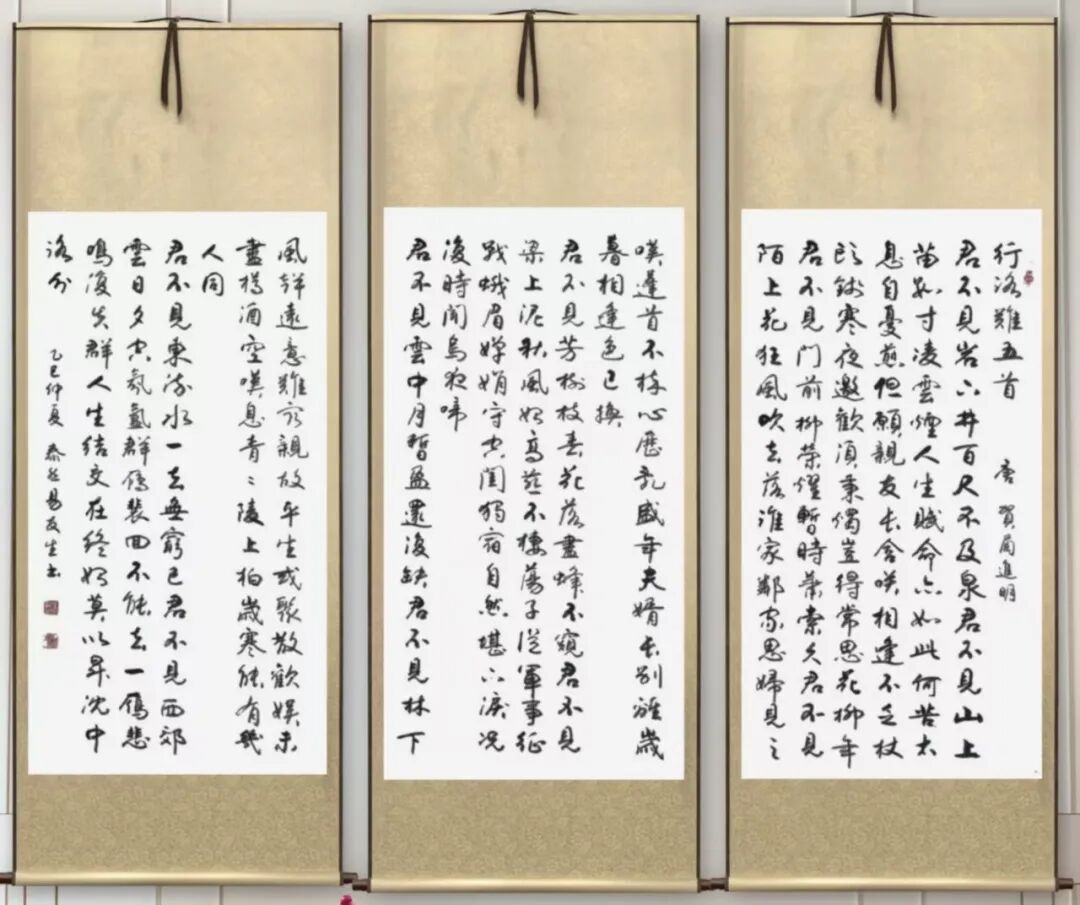 行路難五首 唐 賀蘭進明
君不見岩下井百尺不及泉君不見山上
苗數寸凌雲煙人生賦命亦如此何苦太
息自憂煎但願親友長含咲相逢不乏杖
頭錢寒夜邀歡須秉燭豈得常思花柳年
君不見門前柳榮耀暫時蕭索久君不見
陌上花狂風吹去落誰家鄰家思婦見之
嘆蓬首不梳心歷亂盛年夫婿長別離歲
暮相逢色已換
君不見芳樹枝春花落盡蜂不窺君不見
梁上泥秋風始高燕不棲蕩子從軍事征
戰蛾眉嬋娟守空閨獨宿自然堪下淚況
復時聞烏夜啼
君不見雲中月暫盈還復缺君不見林下
風聲遠意難窮親故平生或聚散歡娛未
盡樽酒空嘆息青〻陵上柏歲寒能有幾
人同
君不見東流水一去無窮已君不見西郊
雲日夕空氛氳群鴈裴回不能去一鴈悲
鳴復失群人生結交在終始莫以昇沈中
路分
乙巳仲夏 泰然易友生書